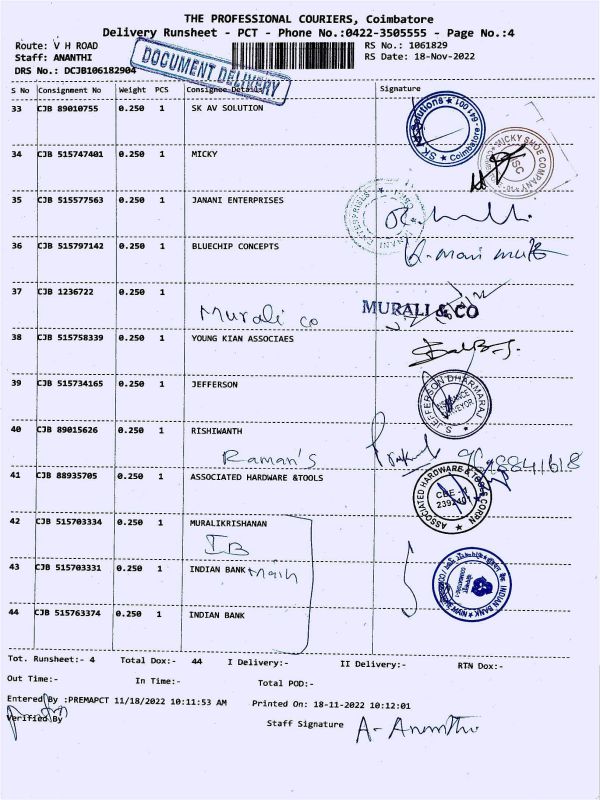 THE PROFESSIONAL COURIERS, Coimbatore
Delivery Runsheet - PCT - Phone No.:0422-3505555 - Page No.:4
Route: V H ROAD RS No.: 1061829
Staff: ANANTHI RS Date: 18-Nov-2022
DRS No.: DCJB106182904
DOCUMENT DELIVERY
S No Consignment No Weight PCS Consignee Details Signature
33 CJB 89010755 0.250 1 SK AV SOLUTION
SK AV Solutions Coimbatore 641 001
34 CJB 515747401 0.250 1 MICKY
MICKY SHOE COMPANY
35 CJB 515577563 0.250 1 JANANI ENTERPRISES
JANANI ENTERPRISES
36 CJB 515797142 0.250 1 BLUECHIP CONCEPTS
37 CJB 1236722 0.250 1
Murali co MURALI & CO
38 CJB 515758339 0.250 1 YOUNG KIAN ASSOCIAES
39 CJB 515734165 0.250 1 JEFFERSON
S. JEFFERSON DHARMARAJ
40 CJB 89015626 0.250 1 RISHIWANTH
Raman's
41 CJB 88935705 0.250 1 ASSOCIATED HARDWARE &TOOLS
ASSOCIATED HARDWARE & TOOLS CORPN
42 CJB 515703334 0.250 1 MURALIKRISHANAN
IB
43 CJB 515703331 0.250 1 INDIAN BANK Main
INDIAN BANK
44 CJB 515763374 0.250 1 INDIAN BANK
Tot. Runsheet:- 4 Total Dox:- 44 I Delivery:- II Delivery:- RTN Dox:-
Out Time:- In Time:- Total POD:-
Entered By :PREMAPCT 11/18/2022 10:11:53 AM Printed On: 18-11-2022 10:12:01
Verified By Staff Signature